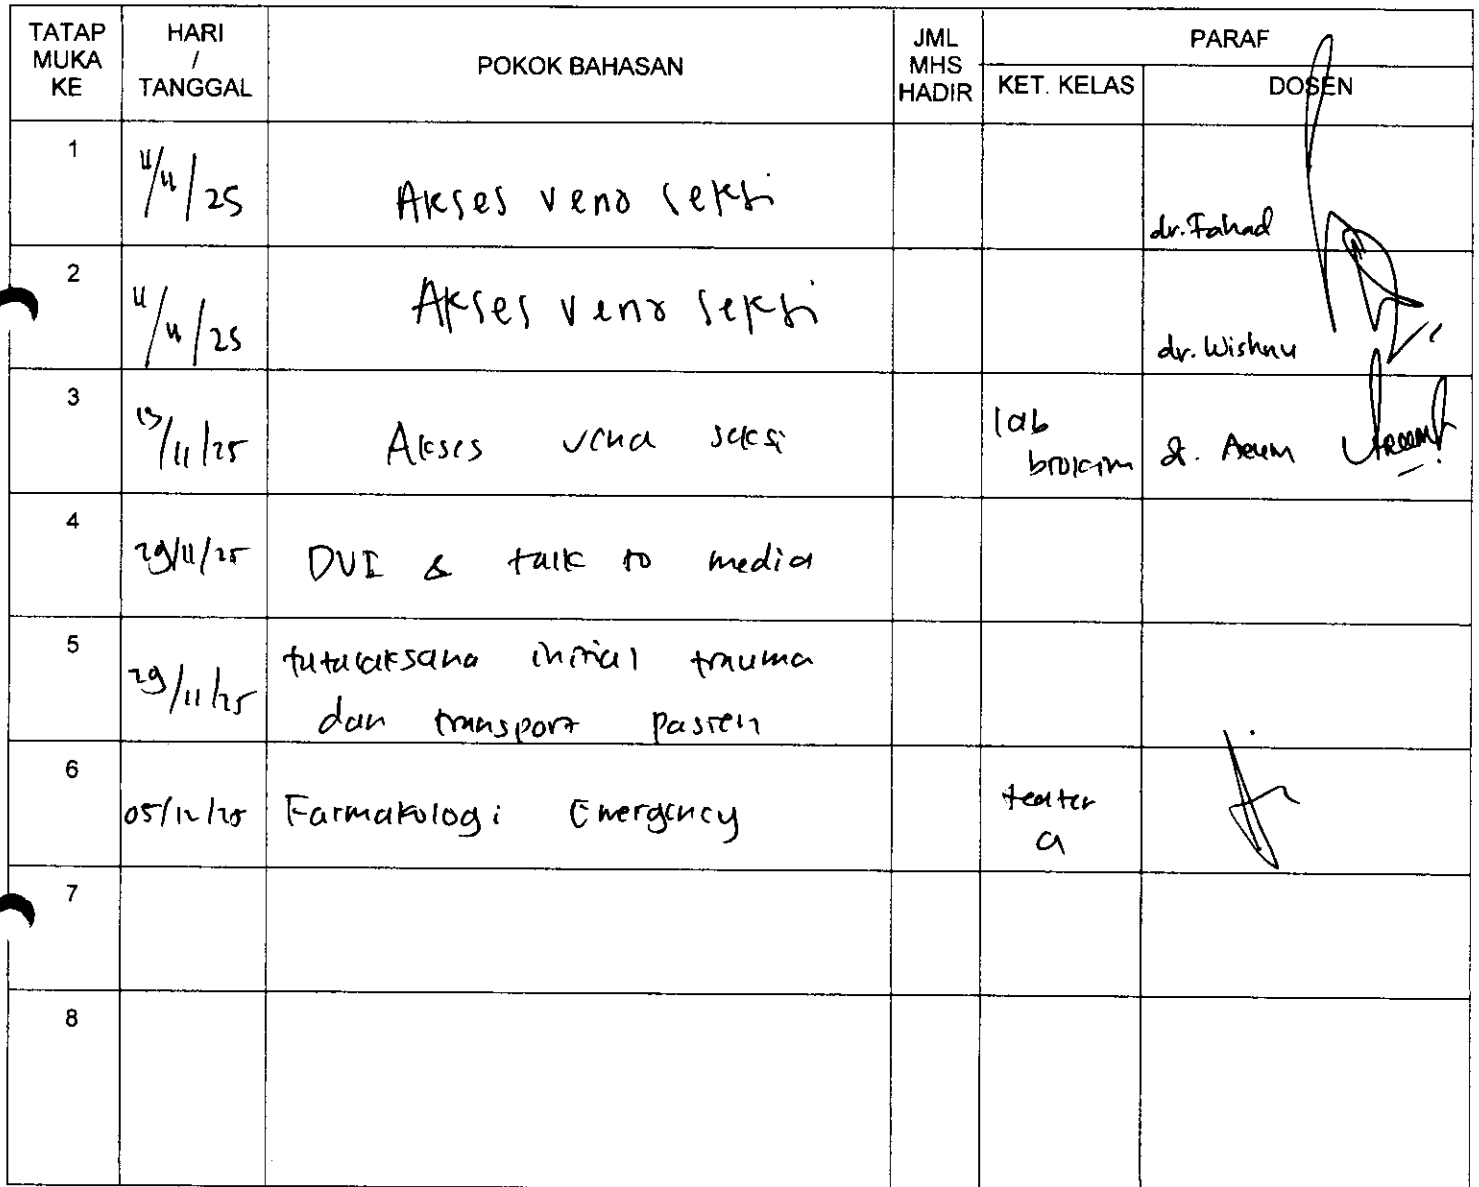 TATAP MUKA KE
HARI / TANGGAL
POKOK BAHASAN
JML MHS HADIR
PARAF
KET. KELAS
DOSEN
1
11/11/25
Akses veno seksi
dr. Fahad
2
11/11/25
Akses veno seksi
dr. Wishnu
3
13/11/25
Akses vena seksi
lab
biokim
dr. Arum
4
29/11/25
DVI & talk to media
5
29/11/25
tatalaksana initial trauma
dan transport pasien
6
05/12/25
Farmakologi Emergency
teater
a
7
8